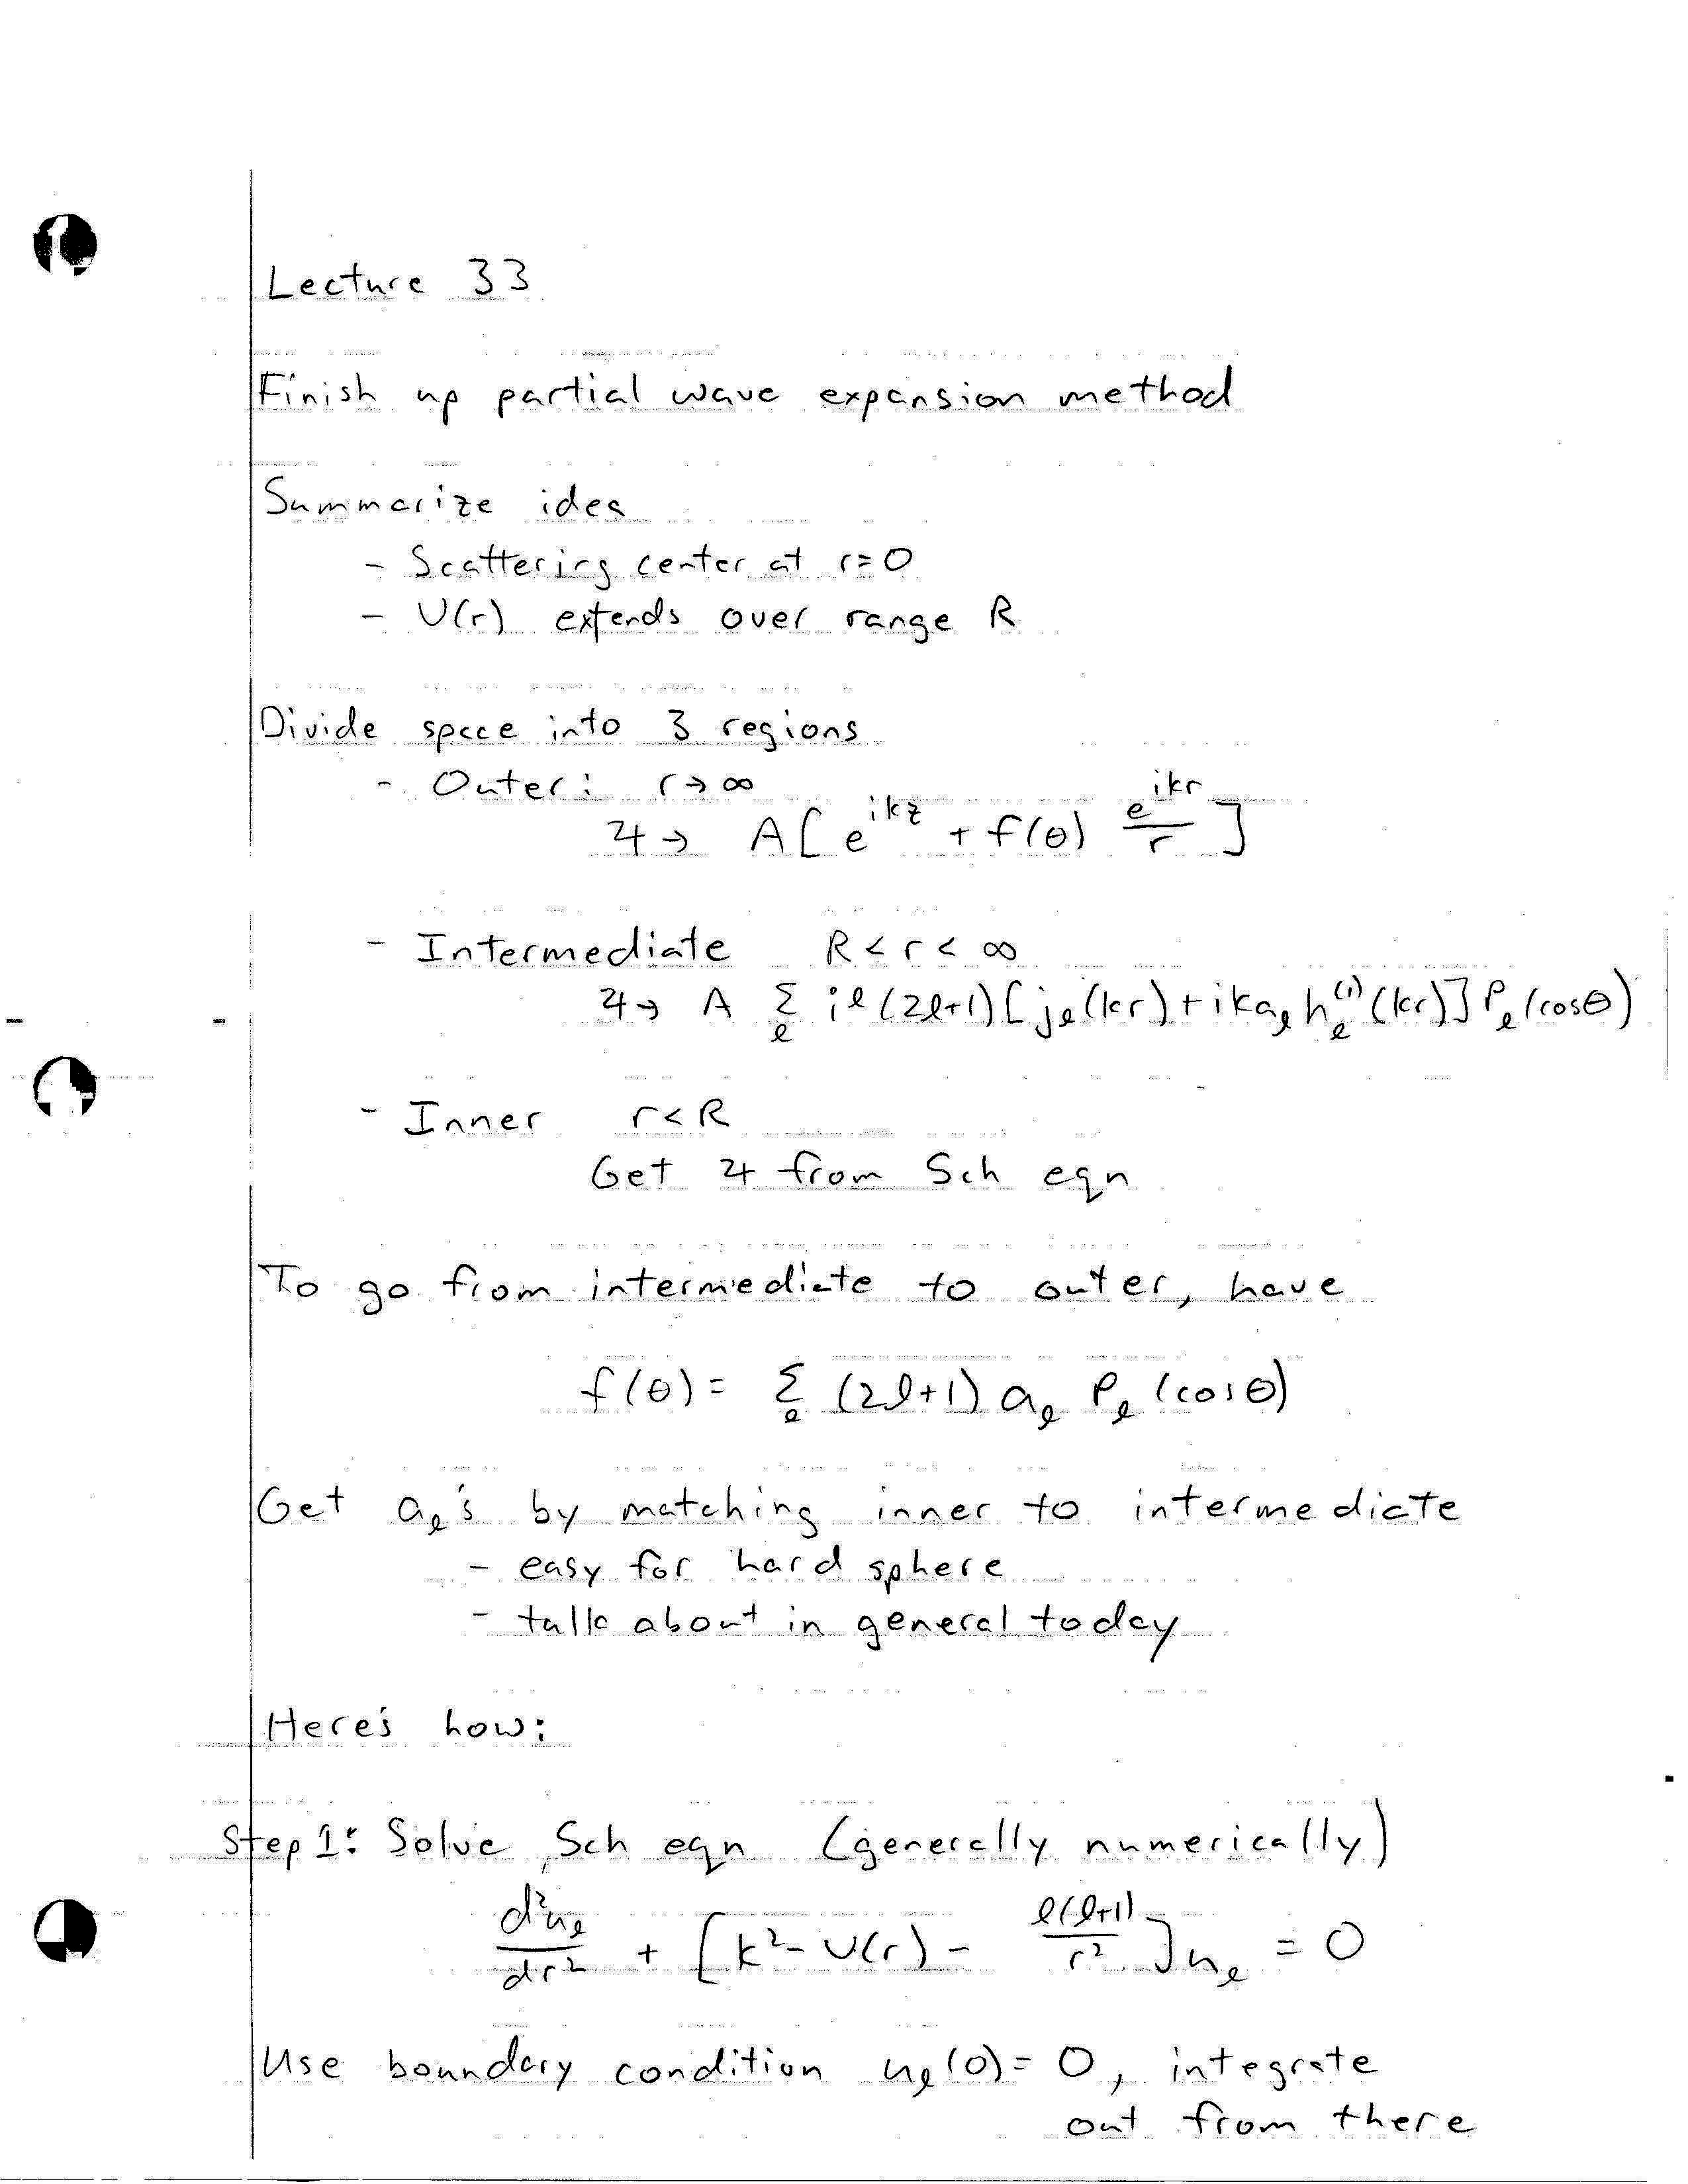 Lecture 33
Finish up partial wave expansion method
Summarize idea
- Scattering center at r=0
- U(r) extends over range R
Divide space into 3 regions
- Outer: r→∞
ψ → A[e^{ikz} + f(θ) e^{ikr}/r]
- Intermediate R<r<∞
ψ→ A Σ_ℓ i^ℓ(2ℓ+1)[j_ℓ(kr)+ika_ℓ h_ℓ^{(1)}(kr)]P_ℓ(cosθ)
- Inner r<R
Get ψ from Sch eqn
To go from intermediate to outer, have
f(θ) = Σ_ℓ (2ℓ+1) a_ℓ P_ℓ(cosθ)
Get a_ℓ's by matching inner to intermediate
- easy for hard sphere
- talk about in general today
Here's how:
Step 1: Solve Sch eqn (generally numerically)
d²u_ℓ/dr² + [k² - U(r) - ℓ(ℓ+1)/r²]u_ℓ = 0
Use boundary condition u_ℓ(0) = 0, integrate
out from there